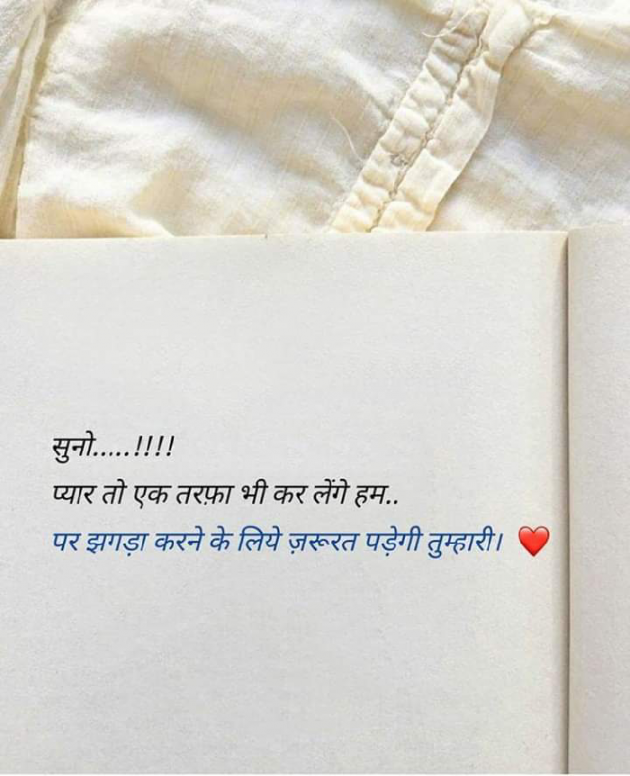 सुनो.....!!!!
प्यार तो एक तरफ़ा भी कर लेंगे हम..
पर झगड़ा करने के लिये ज़रूरत पड़ेगी तुम्हारी। ❤️